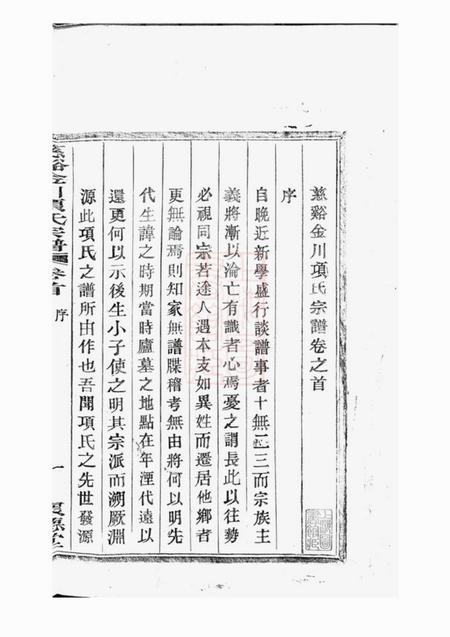 慈谿金川項氏宗譜卷之首
序
自晚近新學盛行談譜事者十無二三而宗族主
義將漸以淪亡有識者心焉憂之謂長此以往勢
必視同宗若途人遇本支如異姓而遷居他鄉者
更無論焉則知家無譜牒稽考無由將何以明先
代生諱之時期當時廬墓之地點在年湮代遠以
還更何以示後生小子使之明其宗派而溯厥淵
源此項氏之譜所由作也吾聞項氏之先世發源
慈谿金川項氏宗譜 卷首 序 一